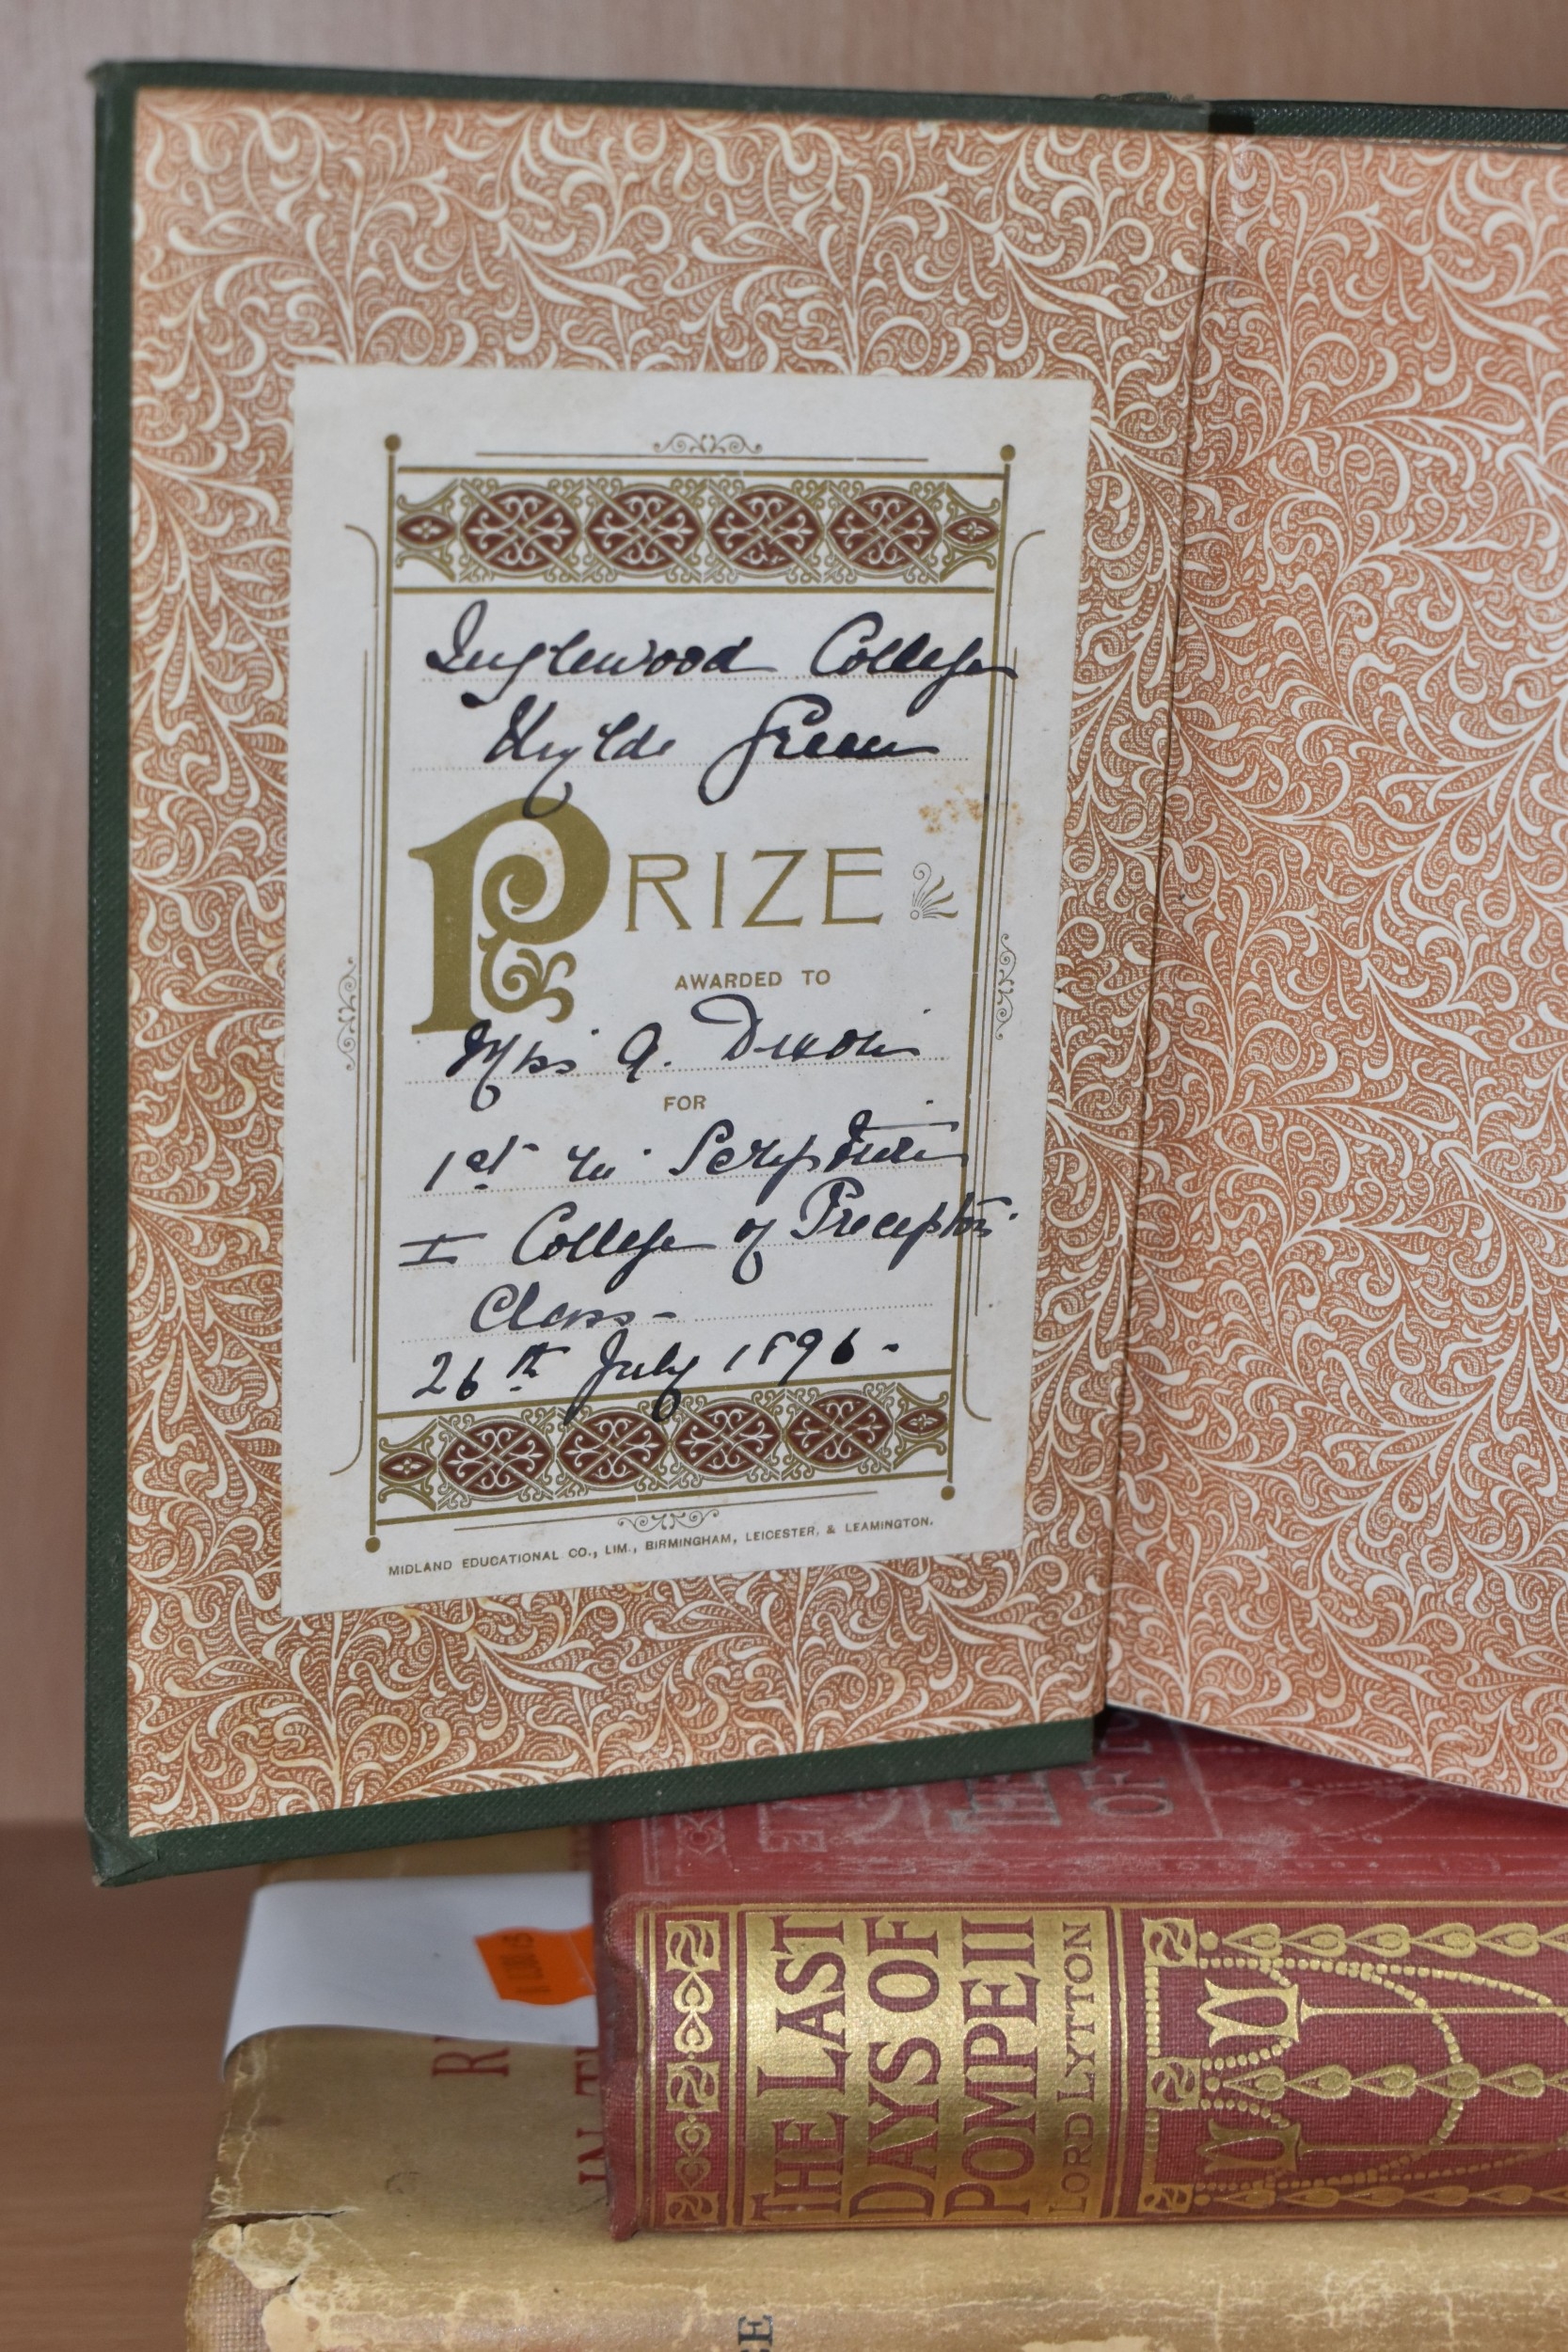 Inglewood College
Wylde Green
PRIZE
AWARDED TO
Miss A. Dixon
FOR
1st in Scripture
I College of Preceptors
Class -
26th July 1896 -
MIDLAND EDUCATIONAL CO., LIM., BIRMINGHAM, LEICESTER, & LEAMINGTON.
THE LAST
DAYS OF
POMPEII
LORD LYTTON